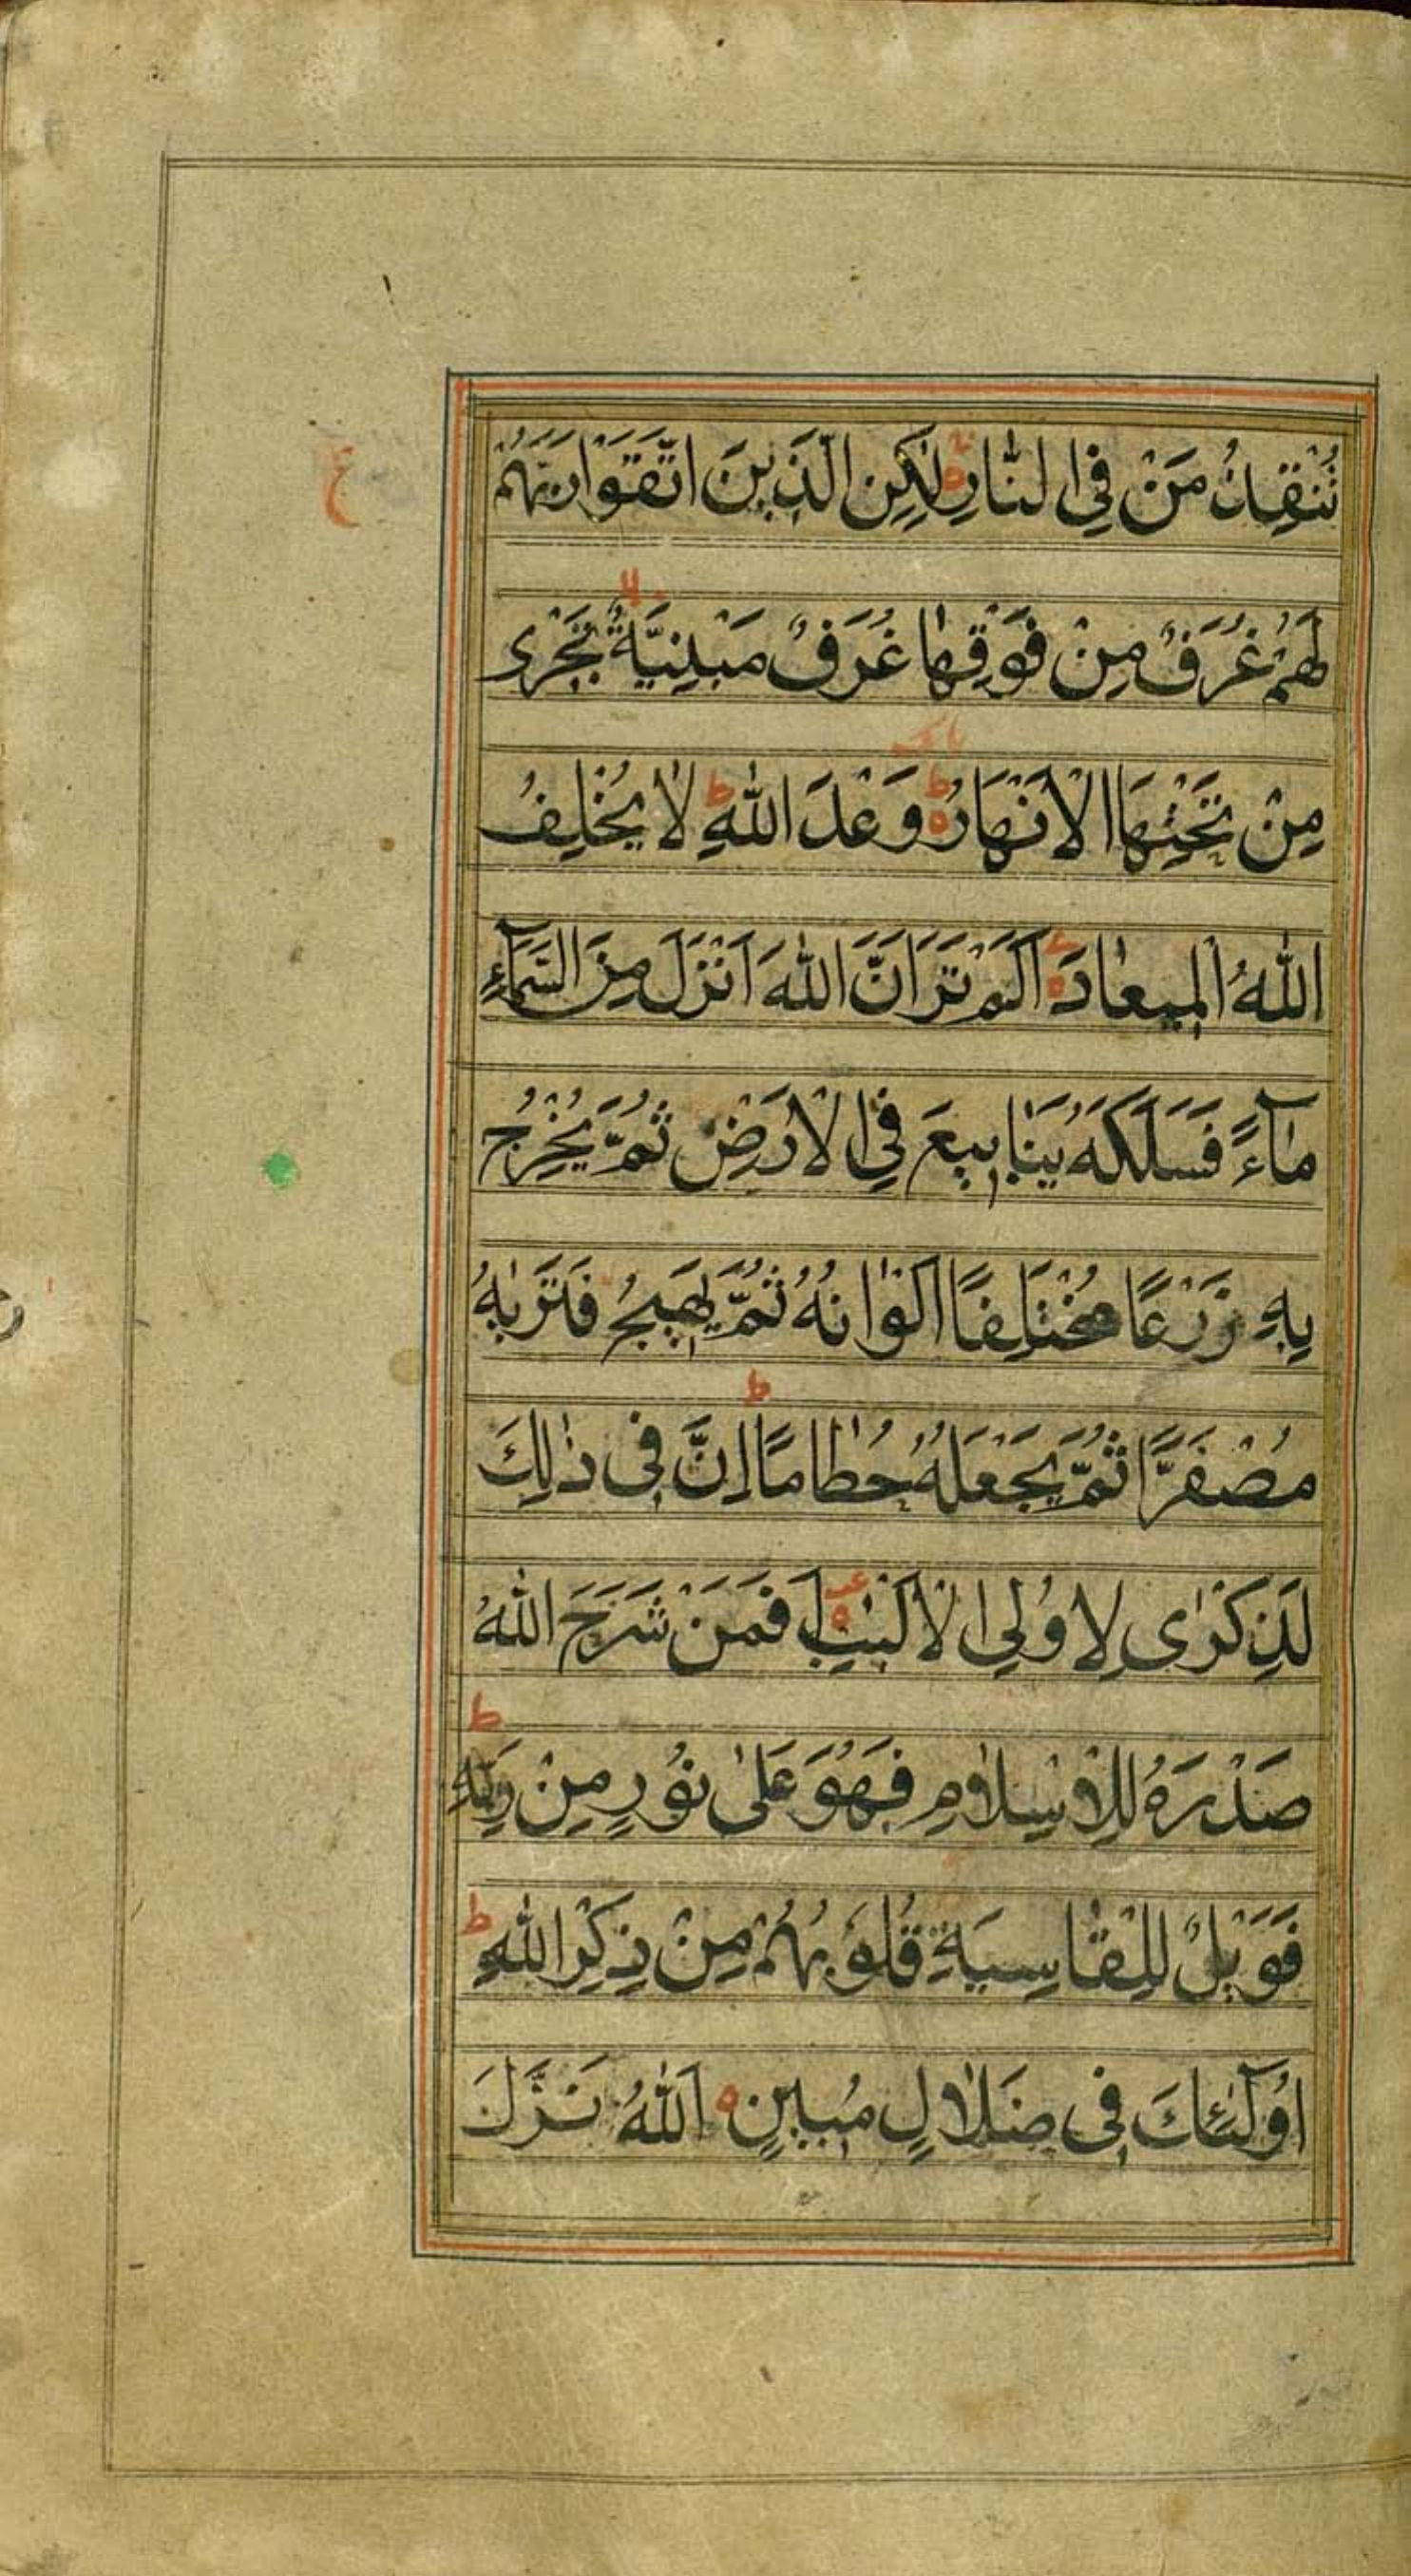 تُنْقِذُ مَنْ فِي النَّارِ لٰكِنِ الَّذِينَ اتَّقَوْا رَبَّهُمْ
لَهُمْ غُرَفٌ مِنْ فَوْقِهٰا غُرَفٌ مَبْنِيَّةٌ تَجْرِى
مِنْ تَحْتِهَا الْاَنْهَارُ وَعْدَ اللّٰهِ لَا يُخْلِفُ
اللّٰهُ الْمِيعٰادَ اَلَمْ تَرَ اَنَّ اللّٰهَ اَنْزَلَ مِنَ السَّمَآءِ
مٰآءً فَسَلَكَهُ يَنٰابِيعَ فِي الْاَرْضِ ثُمَّ يُخْرِجُ
بِهِ زَرْعًا مُخْتَلِفًا اَلْوٰانُهُ ثُمَّ يَهِيجُ فَتَرٰيهُ
مُصْفَرًّا ثُمَّ يَجْعَلُهُ حُطٰامًا اِنَّ فِى ذٰلِكَ
لَذِكْرٰى لِاُولِي الْاَلْبٰبِ اَفَمَنْ شَرَحَ اللّٰهُ
صَدْرَهُ لِلْاِسْلَامِ فَهُوَ عَلىٰ نُوْرٍ مِنْ رَبِّهِ
فَوَيْلٌ لِلْقٰاسِيَةِ قُلُوبُهُمْ مِنْ ذِكْرِ اللّٰهِ
اُولٰٓئِكَ فِى ضَلَالٍ مُبِينٍ اَللّٰهُ نَزَّلَ
ع